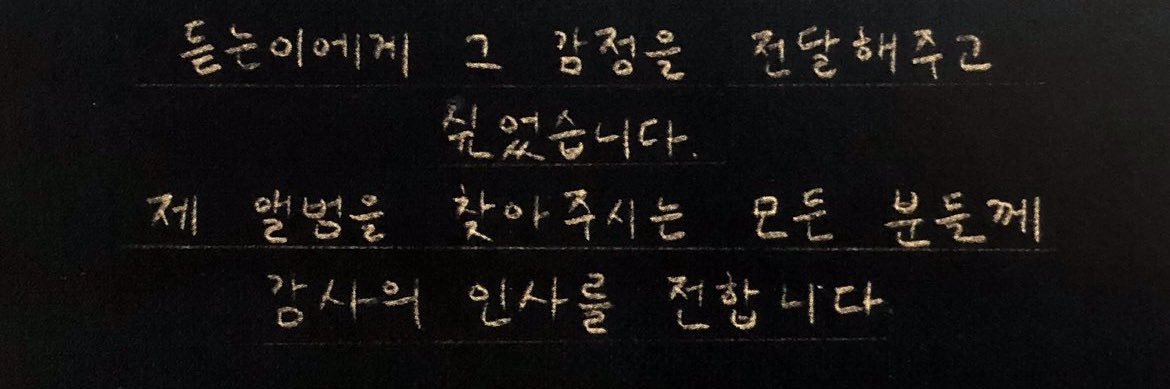 듣는이에게 그 감정을 전달해주고
싶었습니다.
제 앨범을 찾아주시는 모든 분들께
감사의 인사를 전합니다